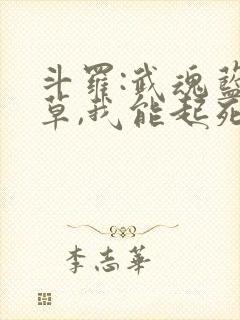 斗羅:武魂藍
草,我能起死
李志華